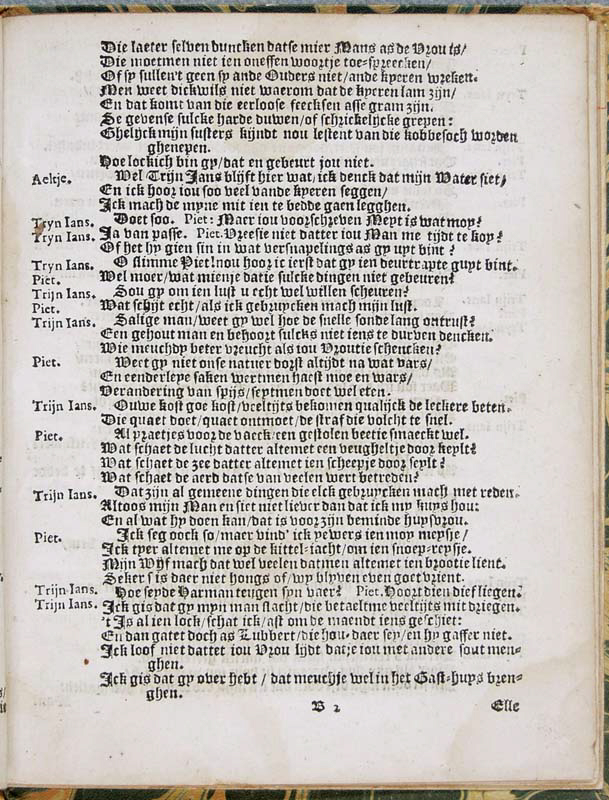 Die laeter selven duncken datse mier Mans as de Vrou is/
Die moetmen niet ien oneffen woortje toe-spreecken/
Of sy sullen't geen sy ande Ouders niet/ande kyeren wreken.
Men weet dickwils niet waerom dat de kyeren lam zijn/
En dat komt van die eerloose feecksen asse gram zijn.
Se gevense sulcke harde duwen/of schrickelycke grepen:
Ghelijck mijn susters kijndt nou lestent van die kobbesoch worden
ghenepen.
Hoe lockich bin gy/dat en gebeurt jou niet.
Aeltje. Wel Trijn Jans blijft hier wat/ick denck dat mijn Water siet/
En ick hoor iou soo veel vande kyeren seggen/
Ick mach de myne mit ien te bedde gaen legghen.
Tryn Ians. Doet soo. Piet: Maer iou voorschreven Meyt is wat moy?
Tryn Ians. Ja van passe. Piet. Vreesie niet datter iou Man me tijdt te koy?
Of het hy gien sin in wat versnapelings as gy uyt bint?
Tryn Ians. O slimme Piet! nou hoor ic ierst dat gy ien deurtrapte guyt bint.
Piet. Wel moer/wat mienje datie sulcke dingen niet gebeuren?
Trijn Ians. Sou gy om ien lust u echt wel willen scheuren?
Piet. Wat schijt echt/als ick gebruycken mach mijn lust.
Trijn Ians. Salige man/weet gy wel hoe de snelle sonde lang ontrust?
Een gehout man en behoort sulcks niet iens te durven dencken.
Wie meuchdy beter vreucht als iou Vroutie schencken?
Piet. Weet gy niet onse natuer dorst altijdt na wat vars/
En eenderleye saken wertmen haest moe en wars/
Verandering van spijs/seytmen doet wel eten.
Trijn Ians. Ouwe kost goe kost/veeltijts bekomen qualijck de leckere beten.
Die quaet doet/quaet ontmoet/de straf die volcht te snel.
Piet. Al praetjes voor de vaeck/een gestolen beetie smaeckt wel.
Wat schaet de lucht datter altemet een veugheltje door keylt?
Wat schaet de zee datter altemet ien scheepje door seylt?
Wat schaet de aerd datse van veelen wert betreden?
Trijn Ians. Dat zijn al gemeene dingen die elck gebruycken mach met reden.
Altoos mijn Man en siet niet liever dan dat ick my kuys hou:
En al wat hy doen kan/dat is voor zijn beminde huysvrou.
Piet. Ick seg oock so/maer vind' ick yewers ien moy meysje/
Ick tyer altemet me op de kittel-iacht/om ien snoep-reysje.
Mijn Wijf mach dat wel veelen datmen altemet ien brootie lient.
Seker s'is daer niet hongs of/wy blyven even goet vrient.
Trijn Ians. Hoe seyde Harman teugen syn vaer? Piet. Hoort dien dief liegen.
Trijn Ians. Ick gis dat gy myn man slacht/die betaeltme veeltijts met driegen.
't Is al ien lock/schat ick/ast om de maendt iens geschiet:
En dan gatet doch as Lubbert/die hou-daer sey/en hy gaffer niet.
Ick loof niet dattet iou Vrou lijdt datje iou met andere sout men-
ghen.
Ick gis dat gy over hebt/dat meuchje wel in het Gast-huys bren-
ghen.
B 2 Elle